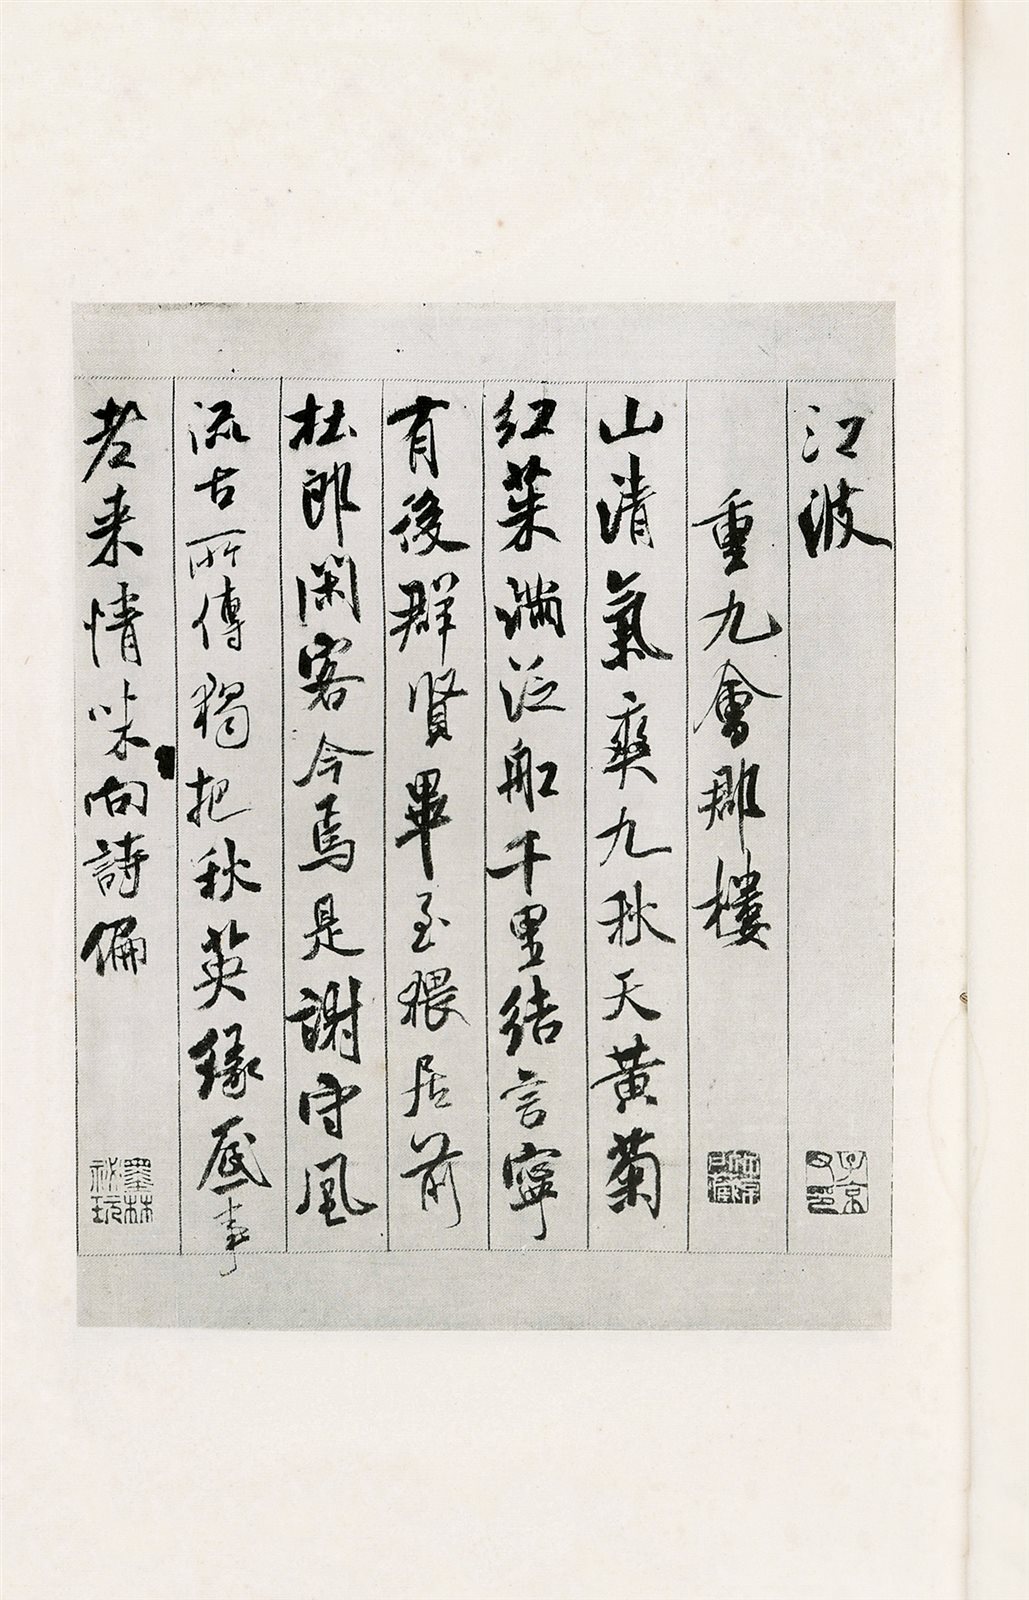 江波
重九會郡樓
山清氣爽九秋天黃菊
紅茱滿泛船千里結言寧
有後群賢畢至猥居前
杜郎閑客今焉是謝守風
流古所傳獨把秋英緣底事
老來情味向詩偏
墨林秘玩